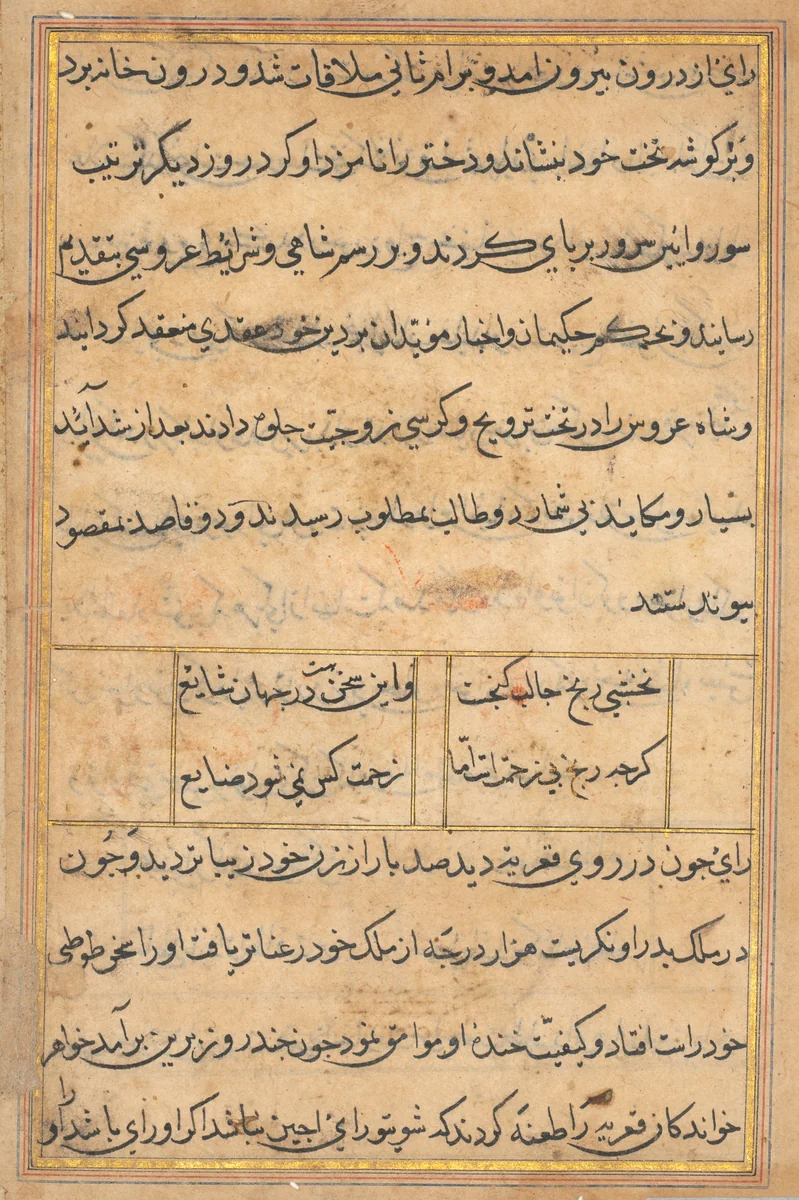 رای از درون بیرون امد و برام ثانی ملاقات شد و درون خانه برد
و بر کوشه تخت خود بنشاند و دختر را نامزد او کرد روز دیکر ترتیب
سور وایین سرور بر بای کردند و بر رسم شاهی و شرائط عروسی بتقدیم
رسایند و بحکم حکیمان و اخبار موبدان بر دین خود عقدی منعقد کردایند
و شاه عروس را در تخت ترویج و کرسی زوجیت جلوه دادند بعد از شداید
بسیار و مکایذ بی شمار دو طالب بمطلوب رسیدند و دو قاصد بمقصود
بیوندستند
نخشبی رنج جالب کنجت
و این سخن هست در جهان شایع
کرجه رنج بی زحمت است اما
زحمت کس نمی شود ضایع
رای جون در روی قمریه دید صد بار از زن خود زیباتر دید و جون
در ملک بدر او نکریت هزار درجه از ملک خود رعناتر یافت او را سخن طوطی
خود راست افتاد و کیفیت خنده او موافق نمود جون جند روز برین برآمد خواهر
خواندکان قمریه را طعنه کردند که شوی تو رای اجین نباشد اکر او رای باشد او را